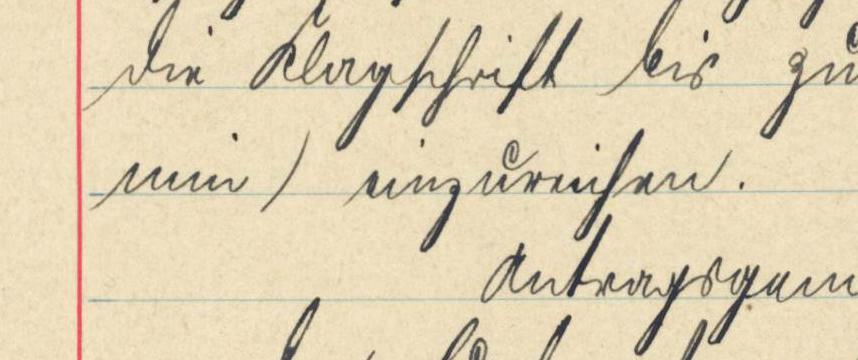 die Klagschrift bis zu
min) einzureichen.
Antragsgem